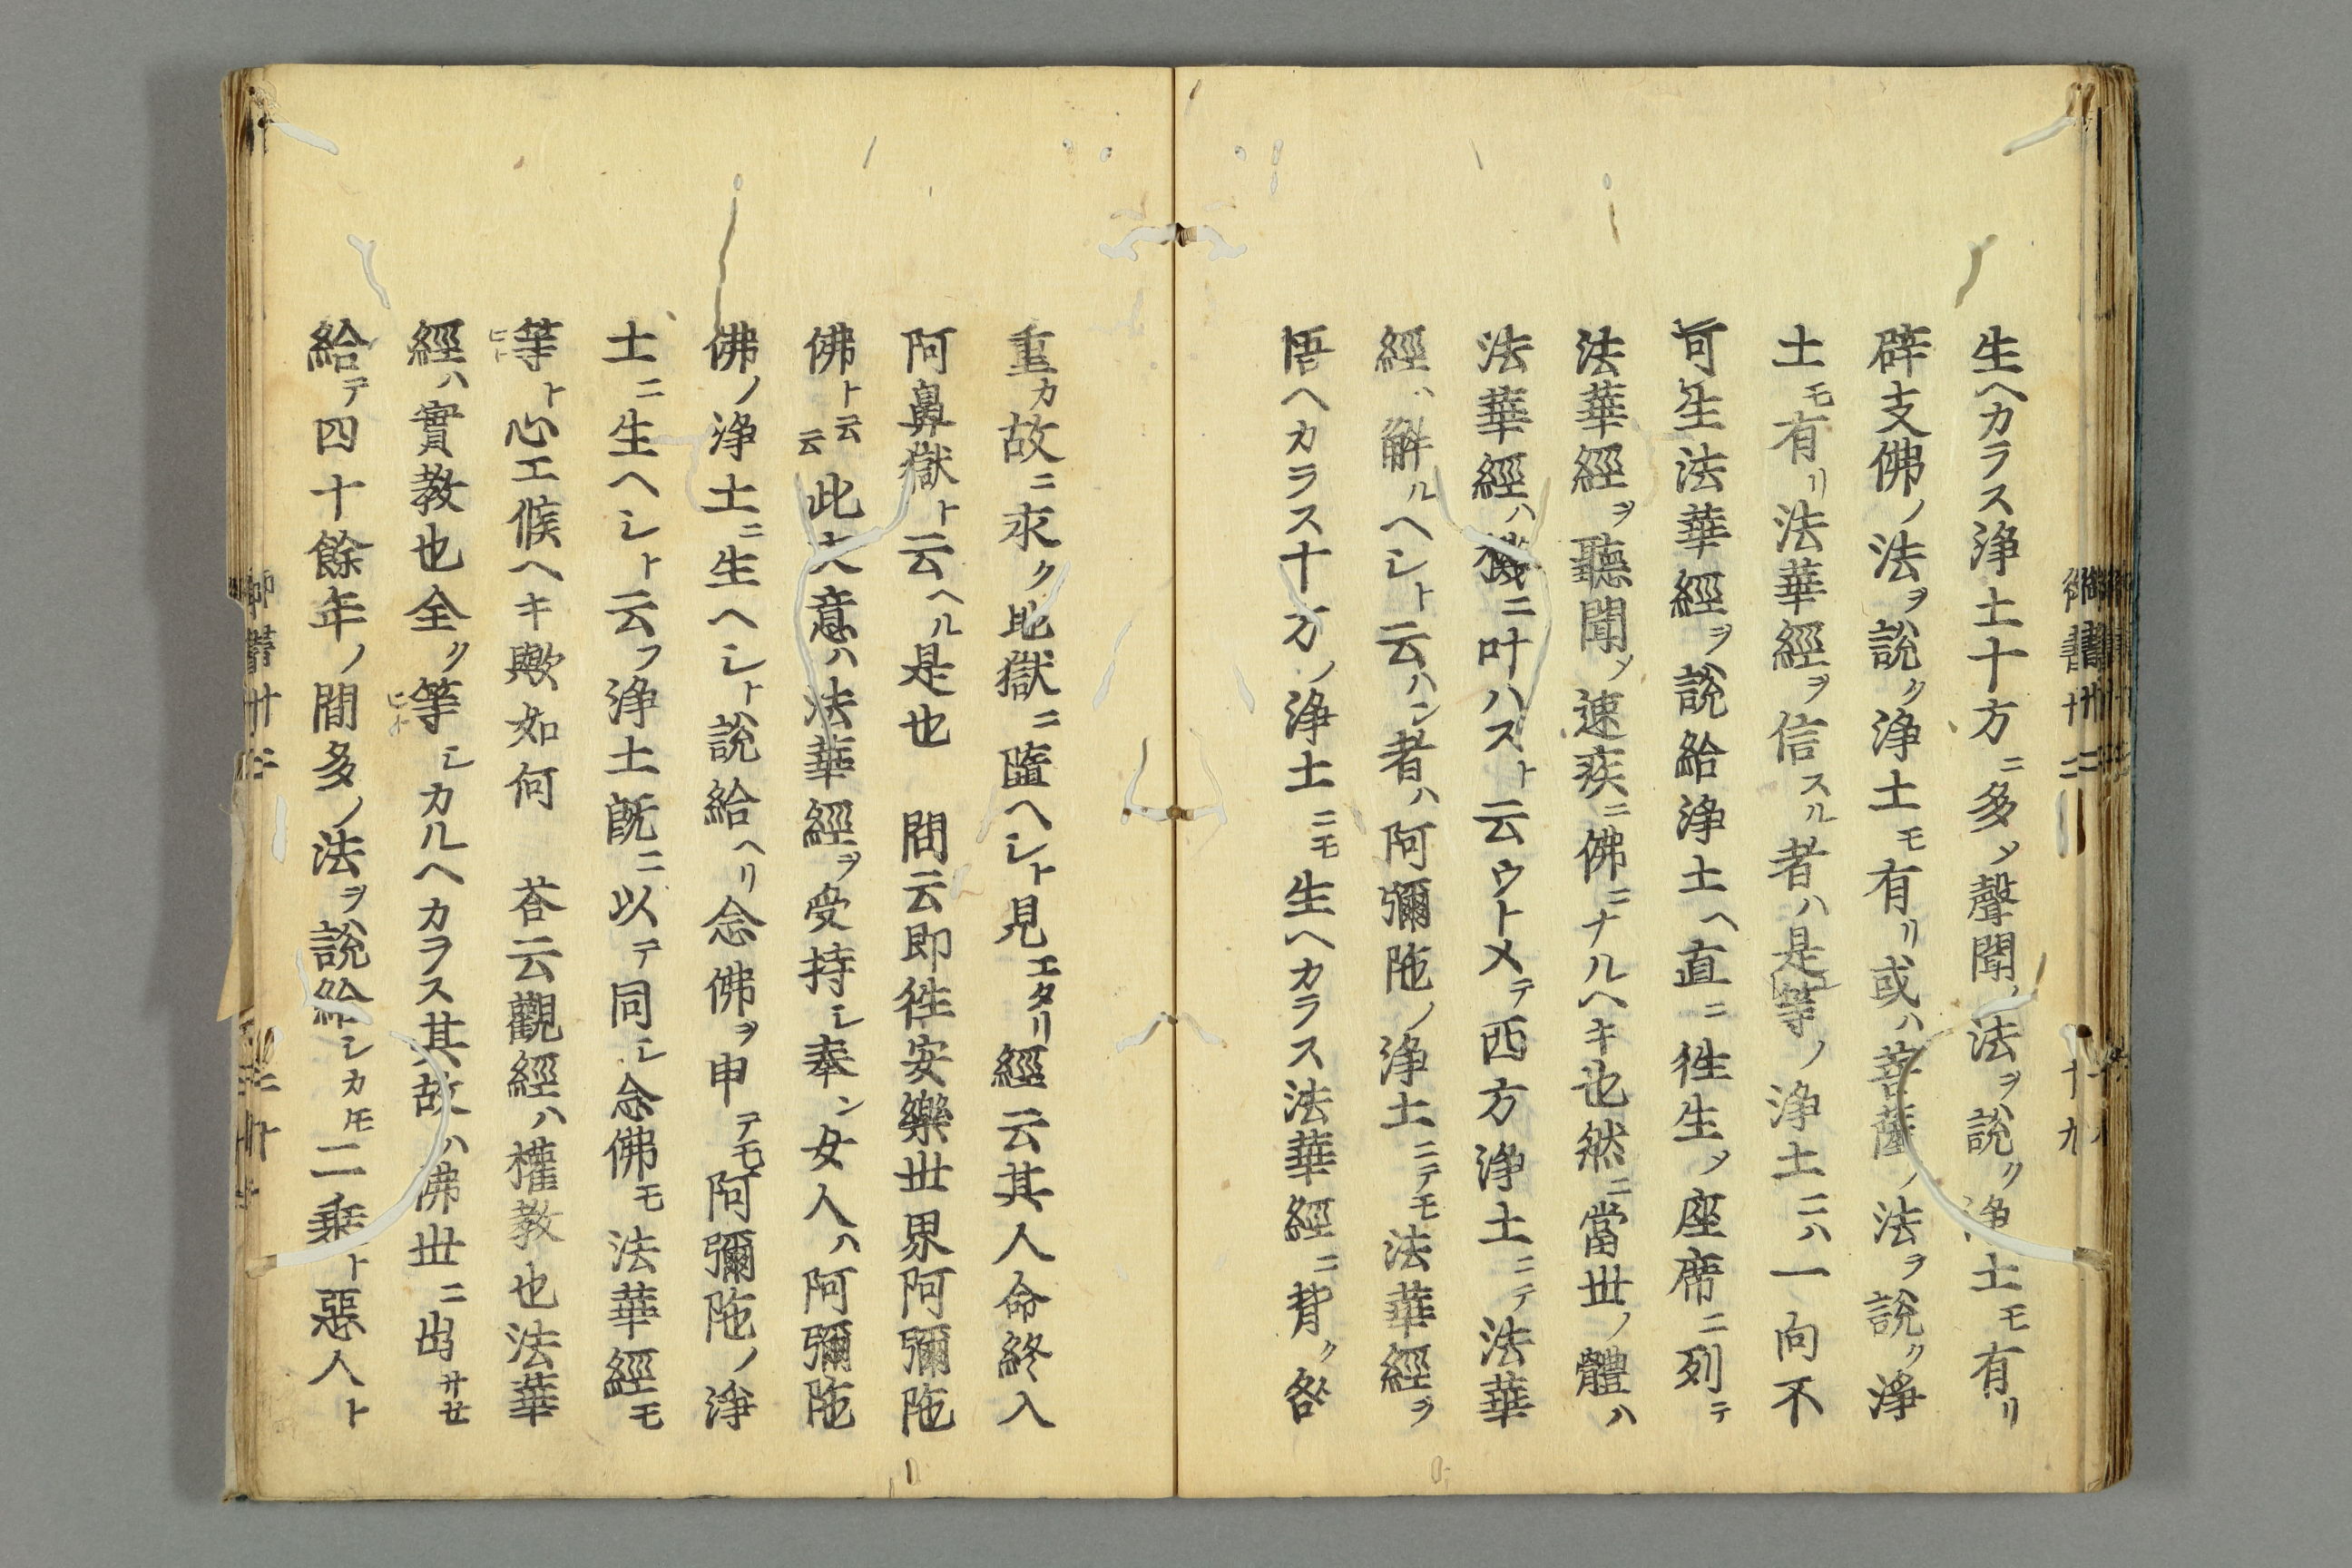 生ヘカラス浄土十方ニ多〆聲聞ノ法ヲ說ク浄土モ有リ
辟支佛ノ法ヲ說ク浄土モ有リ或ハ菩薩ノ法ヲ說ク浄
土モ有リ法華經ヲ信スル者ハ是等ノ浄土ニハ一向不
可生法華經ヲ說給浄土ヘ直ニ徃生〆座席ニ列テ
法華經ヲ聽聞〆速疾ニ佛ニナルヘキ也然ニ當世ノ體ハ
法華經ハ機ニ叶ハスト云ウトメテ西方浄土ニテ法華
經ハ解ルヘシト云ハン者ハ阿彌陁ノ浄土ニテモ法華經ヲ
悟ヘカラス十方ノ浄土ニモ生ヘカラス法華經ニ背ク咎
重カ故ニ永ク地獄ニ墮ヘシト見エタリ經云其人命終入
阿鼻獄ト云ヘル是也 問云即徃安樂世界阿彌陁
佛ト云云此大意ハ法華經ヲ受持シ奉ン女人ハ阿彌陁
佛ノ浄土ニ生ヘシト說給ヘリ念佛ヲ申テモ阿彌陁ノ浄
土ニ生ヘシト云フ浄土旣ニ以テ同シ念佛モ法華經モ
等ト心エ候ヘキ歟如何 荅云觀經ハ權教也法華
經ハ實教也全ク等シカルヘカラス其故ハ佛世ニ出サセ
給テ四十餘年ノ間多ノ法ヲ說給シカ𪜈二乗ト惡人ト